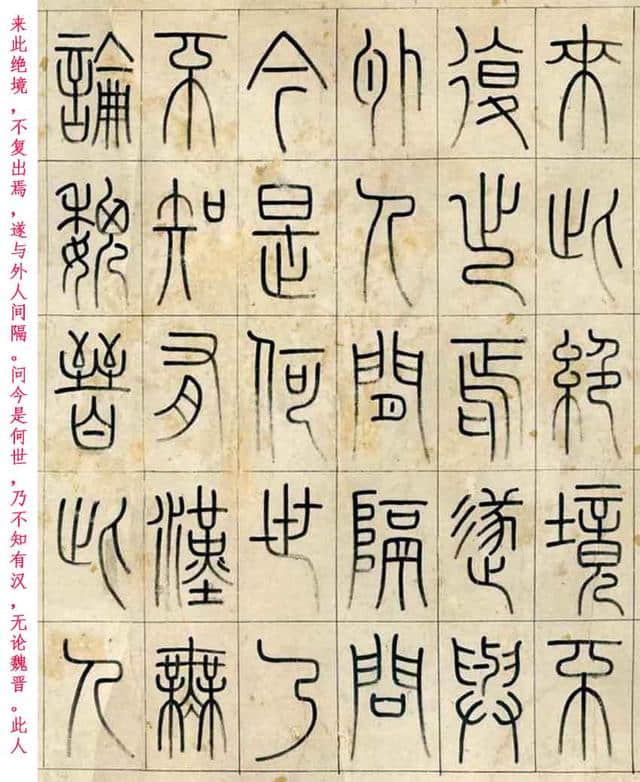 来此绝境，不复出焉，遂与外人间隔。问今是何世，乃不知有汉，无论魏晋。此人
來此絕境不
復出焉遂與
外人間隔問
今是何世乃
不知有漢無
論魏晉此人